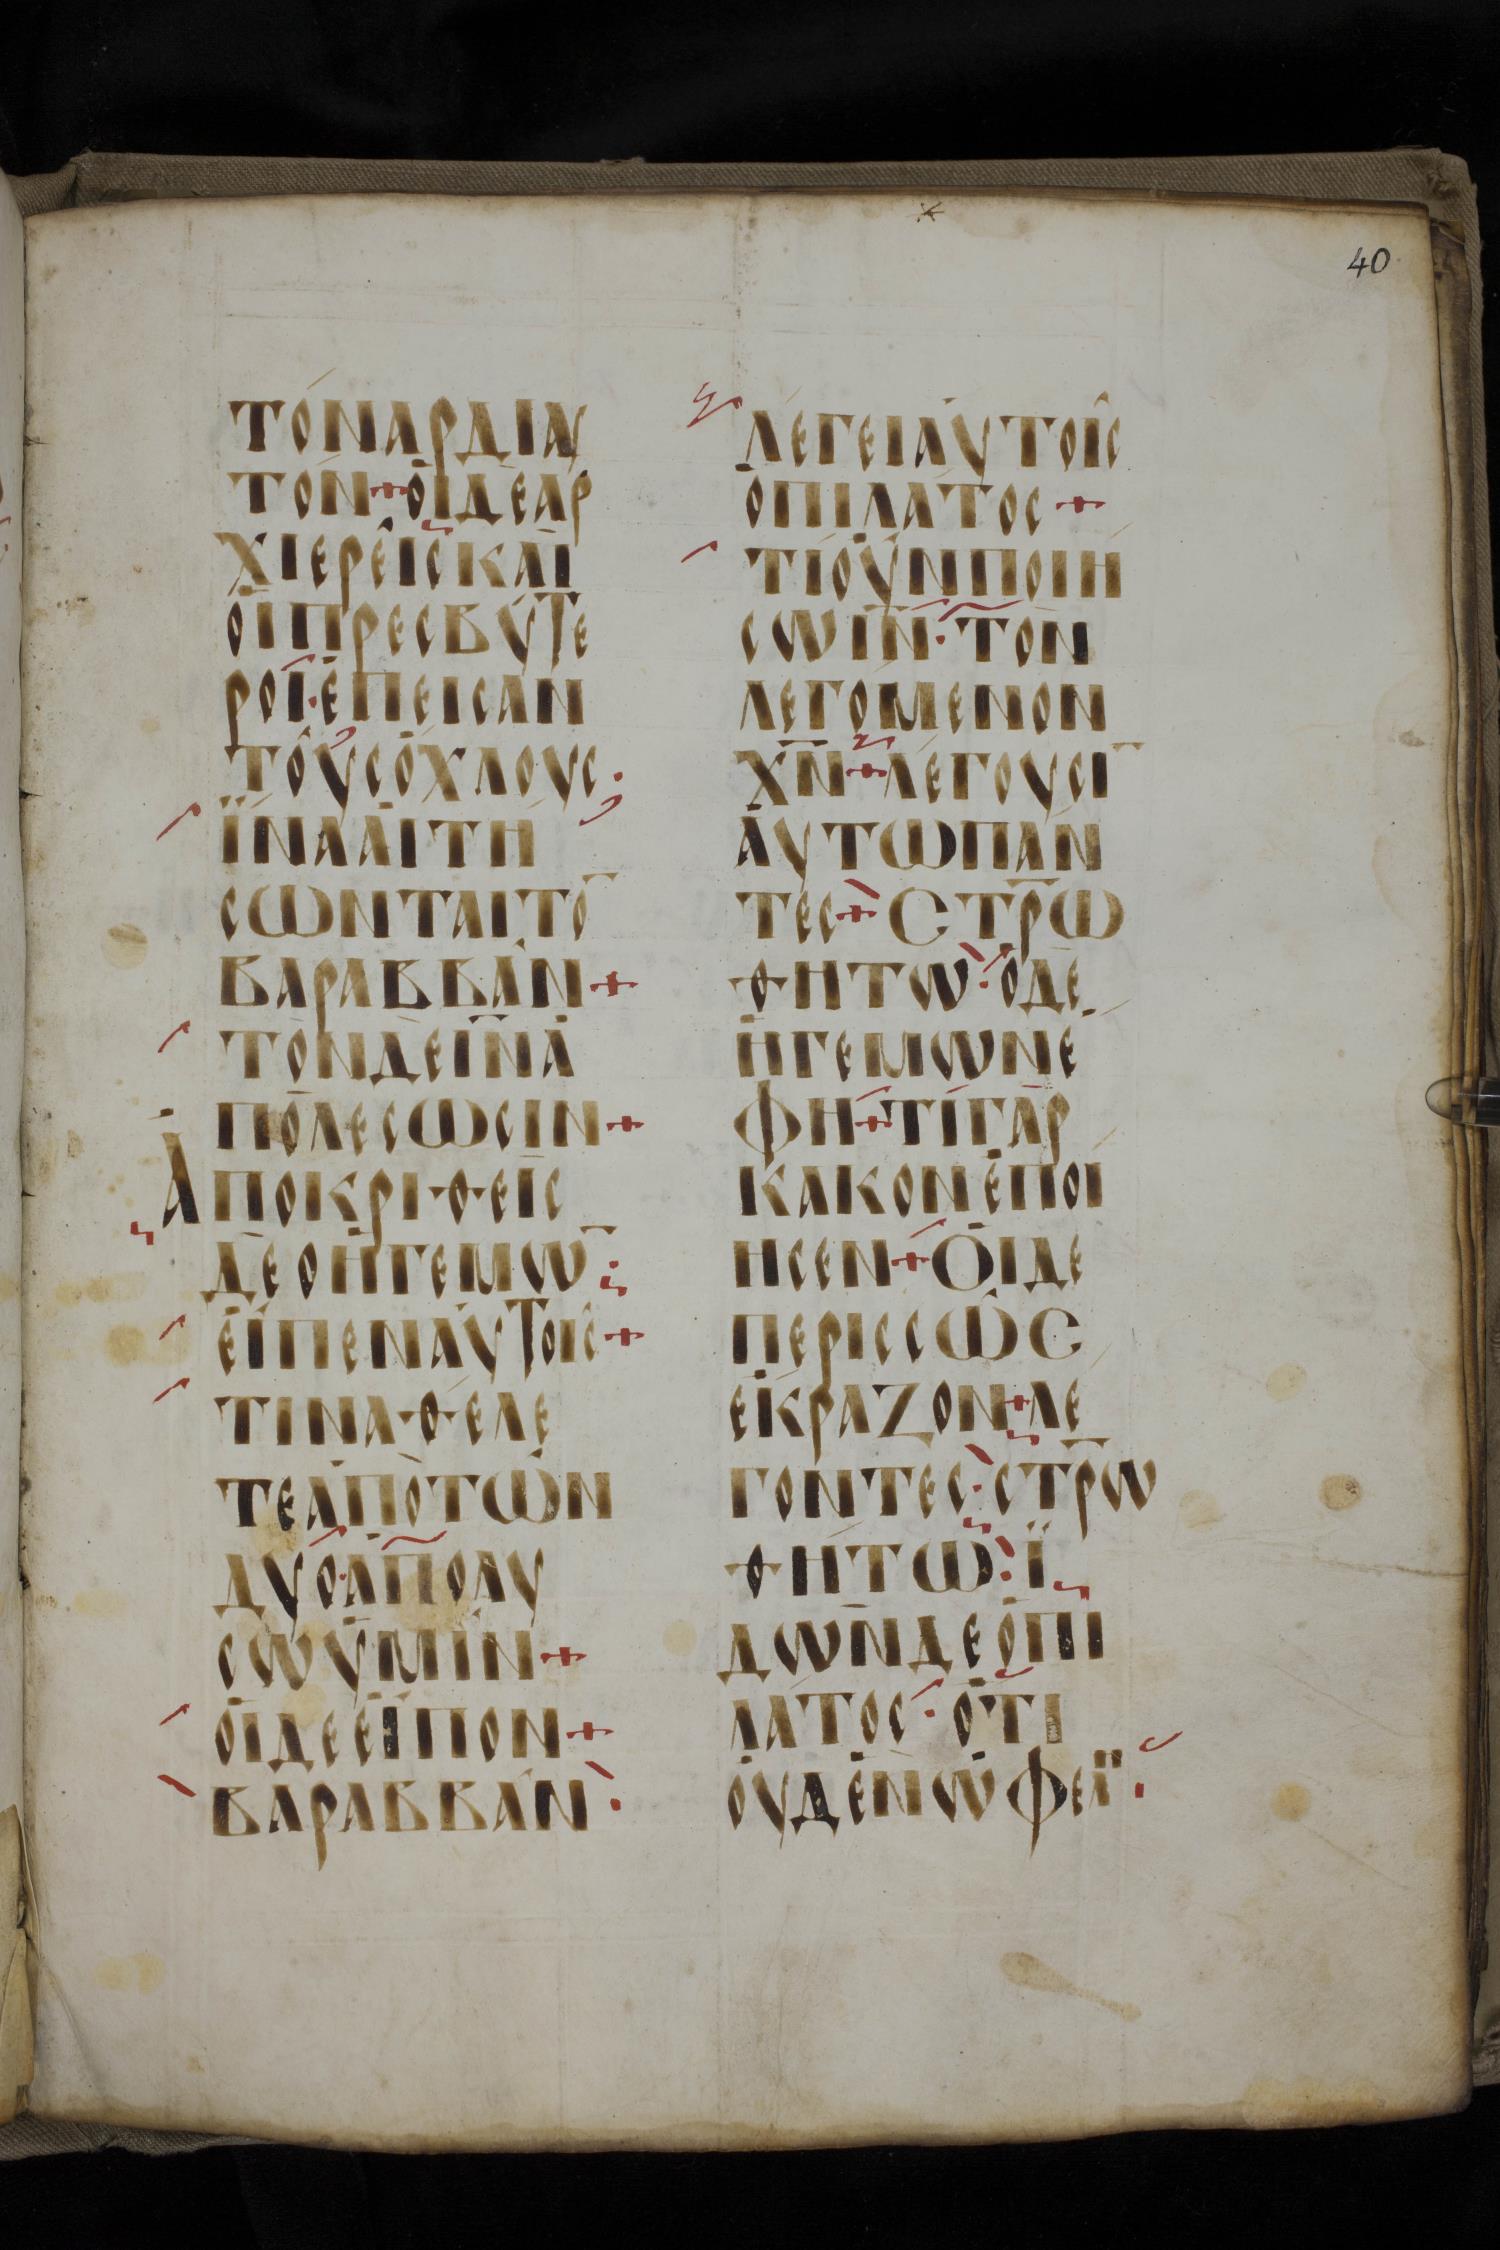 40
ΤΟΝΑΡΔΙΑΥ
ΤΟΝ+ΟΙΔΕΑΡ
ΧΙΕΡΕΙϹΚΑΙ
ΟΙΠΡΕϹΒΥΤΕ
ΡΟΙ·ΕΠΕΙϹΑΝ
ΤΟΥϹΟΧΛΟΥϹ·
ΪΝΑΑΙΤΗ
ϹΩΝΤΑΙΤΟ̅
ΒΑΡΑΒΒΑΝ+
ΤΟΝΔΕΙ̅Ν̅Α
ΠΟΛΕϹΩϹΙΝ+
ΑΠΟΚΡΙΘΕΙϹ
ΔΕΟΗΓΕΜΩ̅·
ΕΙΠΕΝΑΥΤΟΙϹ+
ΤΙΝΑΘΕΛΕ
ΤΕΑΠΟΤΩΝ
ΔΥΟ·ΑΠΟΛΥ
ϹΩΥΜΙΝ+
ΟΙΔΕΕΙΠΟΝ+
ΒΑΡΑΒΒΑΝ·
ΛΕΓΕΙΑΥΤΟΙϹ
ΟΠΙΛΑΤΟϹ+
ΤΙΟΥΝΠΟΙΗ
ϹΩΙ̅Ν̅·ΤΟΝ
ΛΕΓΟΜΕΝΟΝ
Χ̅Ν̅+ΛΕΓΟΥϹΙ̅
ΑΥΤΩΠΑΝ
ΤΕϹ+ϹΤ̅Ρ̅Ω
ΘΗΤΩ·ΟΔΕ
ΗΓΕΜΩΝΕ
ΦΗ+ΤΙΓΑΡ
ΚΑΚΟΝΕΠΟΙ
ΗϹΕΝ+ΟΙΔΕ
ΠΕΡΙϹϹΩϹ
ΕΚΡΑΖΟΝ+ΛΕ
ΓΟΝΤΕϹ·ϹΤ̅Ρ̅Ω
ΘΗΤΩ·Ϊ
ΔΩΝΔΕΟΠΙ
ΛΑΤΟϹ·ΟΤΙ
ΟΥΔΕΝΩΦΕΛΕΙ·